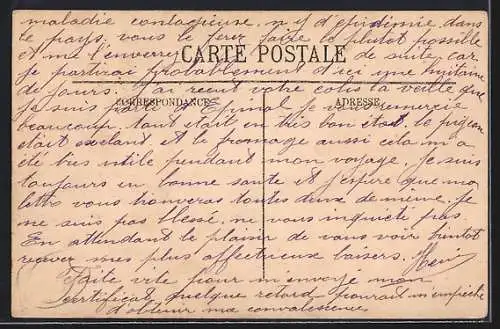 maladie contagieuse, n'y d'épidémie dans
le pays. vous le ferez faire le plutot possible
et me l'enverrez de suite car
CARTE POSTALE
je partirai probablement d'ici une huitaine
de jours. J'ai recut votre colis la veille que
CORRESPONDANCE
ADRESSE
je suis parti Epinal je vous remercie
beaucoup, tout était en très bon état. le pigeon
était excelent. et le fromage aussi cela m'a
été bus utile pendant mon voyage. Je suis
toujours en bonne sante et j'espère que ma
lettre vous trouveras toutes deux de même. je
ne suis pas blessé. ne vous inquiété pas.
En attendant le plaisir de vous voir bientot
recever mes plus affectueux baisers. Henri
Faite vite pour m'envoyé mon
certificat quelque retard pourrait m'empeche
d'obtenir ma convalescence